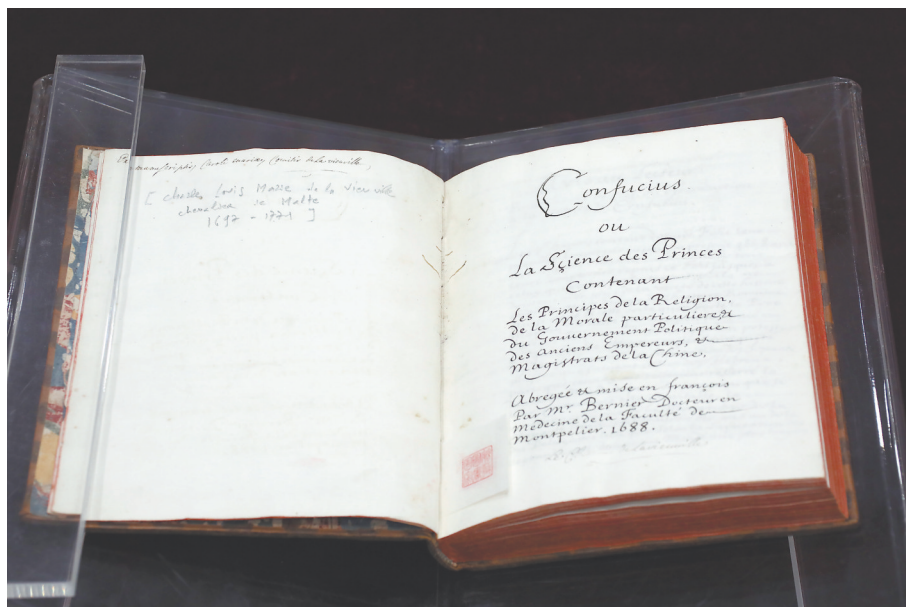 Ex manuscriptis Caroli mariae Comitis de la vieuville,
[ charles Louis Marie de la vieuville
chevalier de Malte
1697 - 1771 ]
Confucius.
ou
La Sçience des Princes
Contenant
Les Principes de la Religion,
de la Morale particuliere, &
du Gouvernement Politique
des anciens Empereurs, &
Magistrats de la Chine,
Abregée & mise en françois
Par Mr. Bernier Docteur en
Medecine de la Faculté de
Montpelier. 1688.